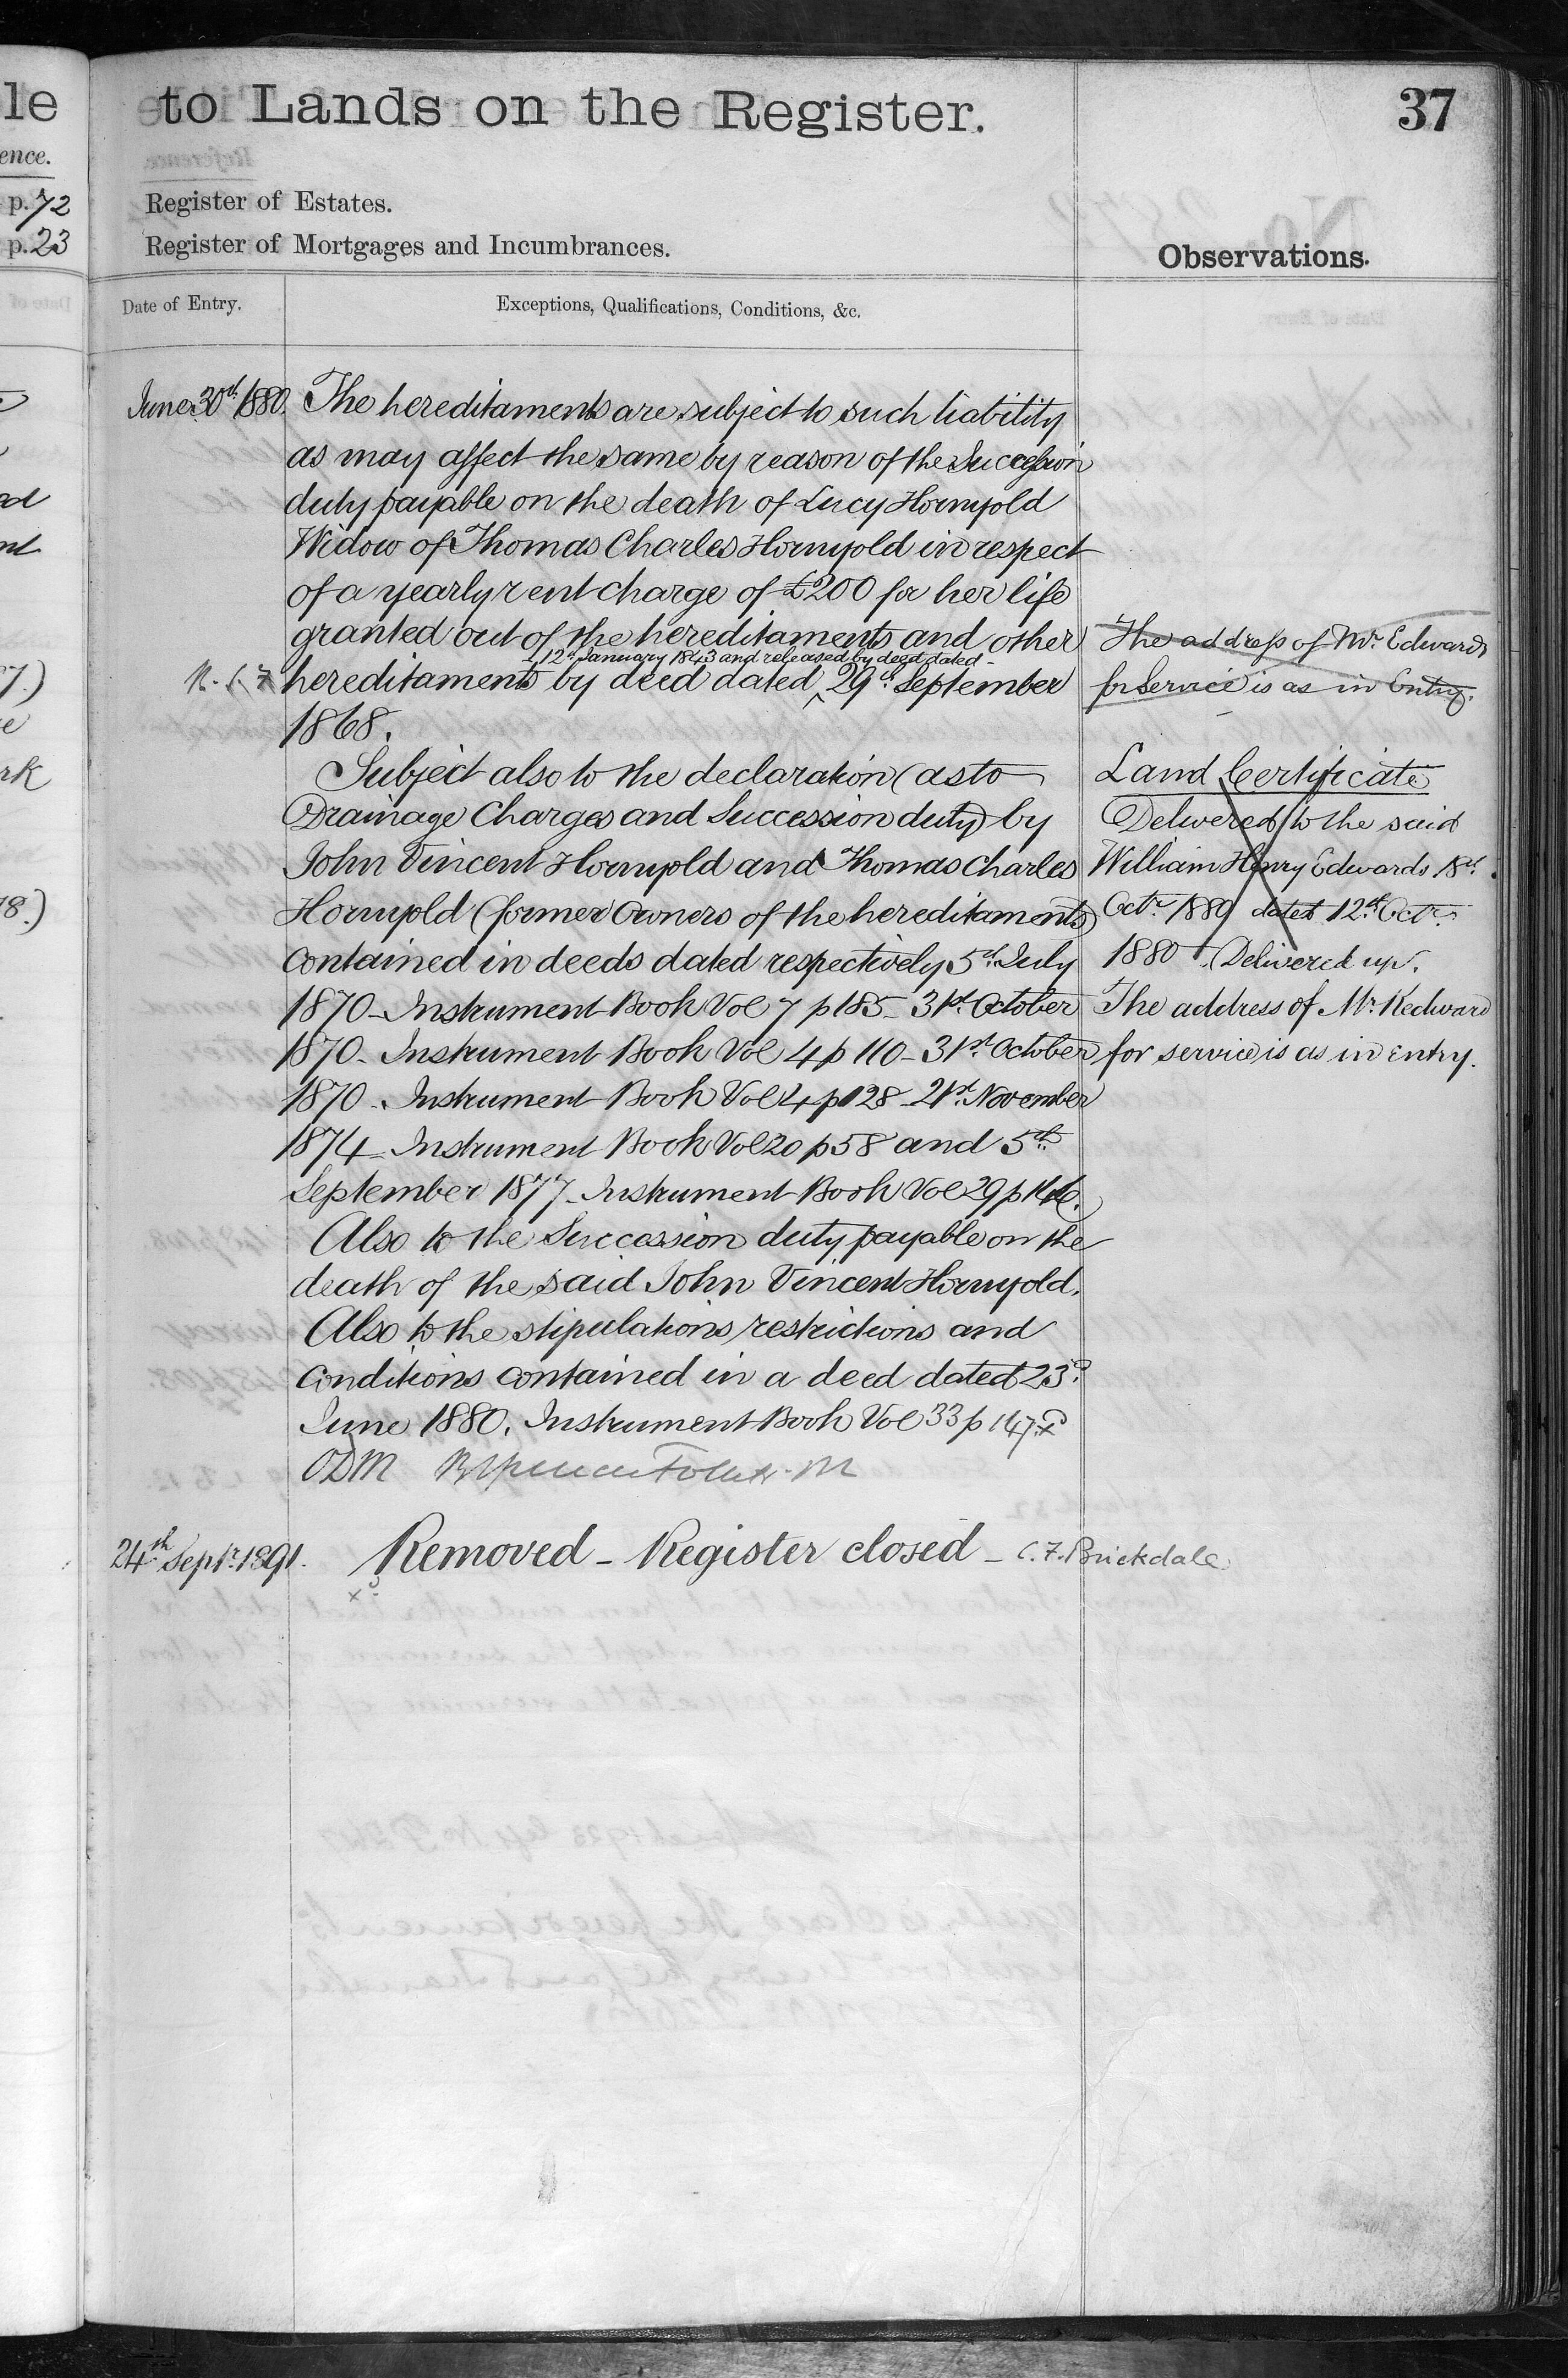 le
ence.
p. 72
p. 23
to Lands on the Register.
37
Register of Estates.
Register of Mortgages and Incumbrances.
Observations.
Date of Entry.
Exceptions, Qualifications, Conditions, &c.
June 30th 1880.
The hereditaments are subject to such liability
as may affect the same by reason of the Succession
duty payable on the death of Lucy Hornyold
Widow of Thomas Charles Hornyold in respect
of a yearly rent charge of £200 for her life
granted out of the hereditaments and other
12th January 1843 and released by deed dated
hereditaments by deed dated ^ 29th September
1868.
Subject also to the declaration (as to
Drainage Charges and Succession duty) by
John Vincent Hornyold and Thomas Charles
Hornyold (former Owners of the hereditaments)
contained in deeds dated respectively 5th July
1870 - Instrument Book Vol 7 p 185 - 31st October
1870 - Instrument Book Vol 4 p 110 - 31st October
1870 - Instrument Book Vol 4 p 128 - 21st November
1874 - Instrument Book Vol 20 p 58 and 5th
September 1877 - Instrument Book Vol 29 p 146.
Also to the Succession duty payable on the
death of the said John Vincent Hornyold.
Also to the stipulations restrictions and
conditions contained in a deed dated 23d
June 1880. Instrument Book Vol 33 p 147
ODM
The address of Mr. Edwards
for Service is as in Entry.
Land Certificate
Delivered to the said
William Henry Edwards 18th
Octr. 1880 dated 12th Octr.
1880. Delivered up.
The address of Mr. Kedward
for service is as in entry.
24th Septr. 1891.
Removed - Register closed - C. F. Brickdale